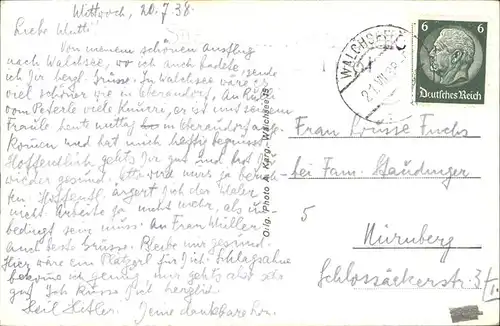 Mittwoch, 20.7.38.
Liebe Mutti
Von meinem schönen Ausflug
nach Walchsee, wo ich auch badete
ich Dir herzl. Grüsse. In Walchsee wäre es sende
viel schöner wie in Oberaudorf. An
vom Peterle viele er ist mit seinem
Fräule heute mittag in Oberaudorf ange
komen und hat mich heftig begrüsst.
Hoffentlich gehts Dir gut und bist
wieder gesund. wird mir ja berich-
ten. Hoffentl. ärgert Dich der
nicht. Arbeite ja nicht mehr, als un
bedingt sein muss. An Frau Müller
auch beste Grüsse. Bleibe nur gesund.
Hier wäre ein Platzerl für Dich. Schlagsahne
bekome ich genug mir gehts also sehr
gut. Ich küsse Dich herzlich
Heil Hitler. Deine dankbare
Orig. Photo Karg. Walchsee
WALCHSEE
21.VII.38
6 6
Deutsches Reich
Frau Luise Fuchs
bei Fam. Staudinger
5
Nürnberg
Schlossäckerstr. 37/I.